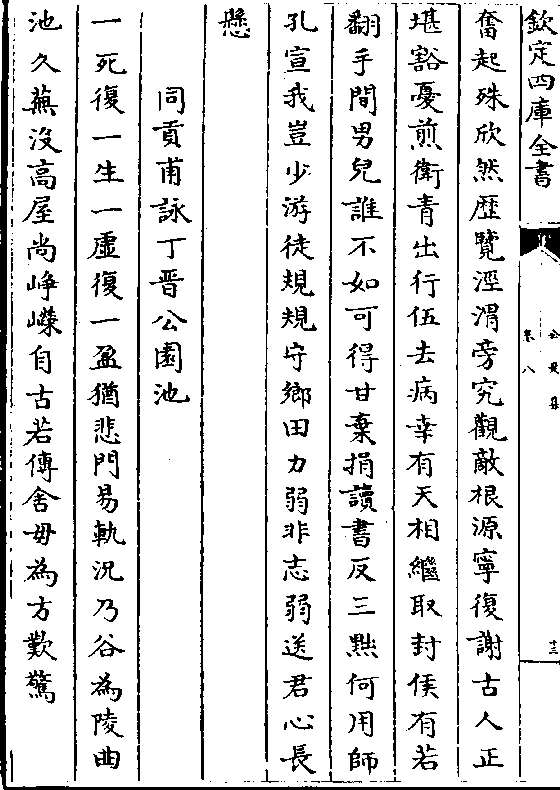 欽定四庫全書
公是集
卷八
十三
奮起殊欣然歴覽涇渭旁究觀敵根源寧復謝古人正
堪豁憂煎衛青出行伍去病幸有天相繼取封侯有若
翻手間男兒誰不如可得甘棄捐讀書反三黜何用師
孔宣我豈少游徒規規守鄉田力弱非志弱送君心長
懸
同貢甫詠丁晋公園池
一死復一生一虛復一盈猶悲門易軌況乃谷為陵曲
池久蕪沒高屋尚崢嶸自古若傳舍毋為方歎驚